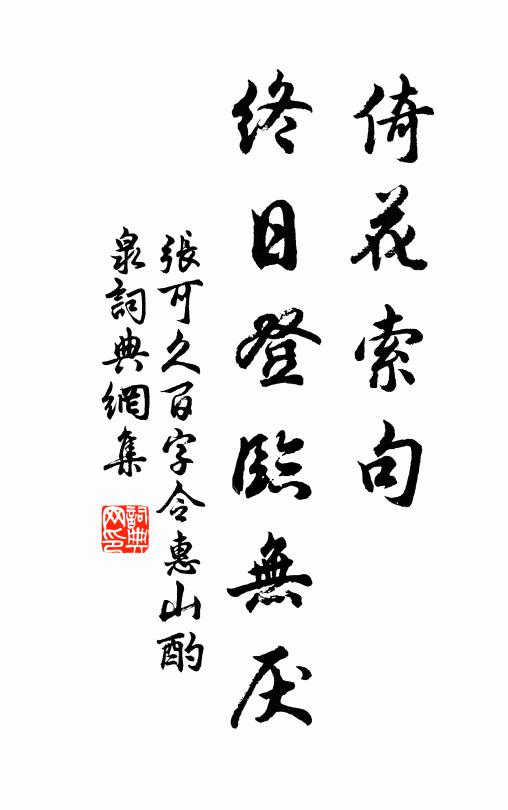 倚花索句
終日登臨無厌
張可久百字令惠山酌
泉詞典網集
詞典
网印